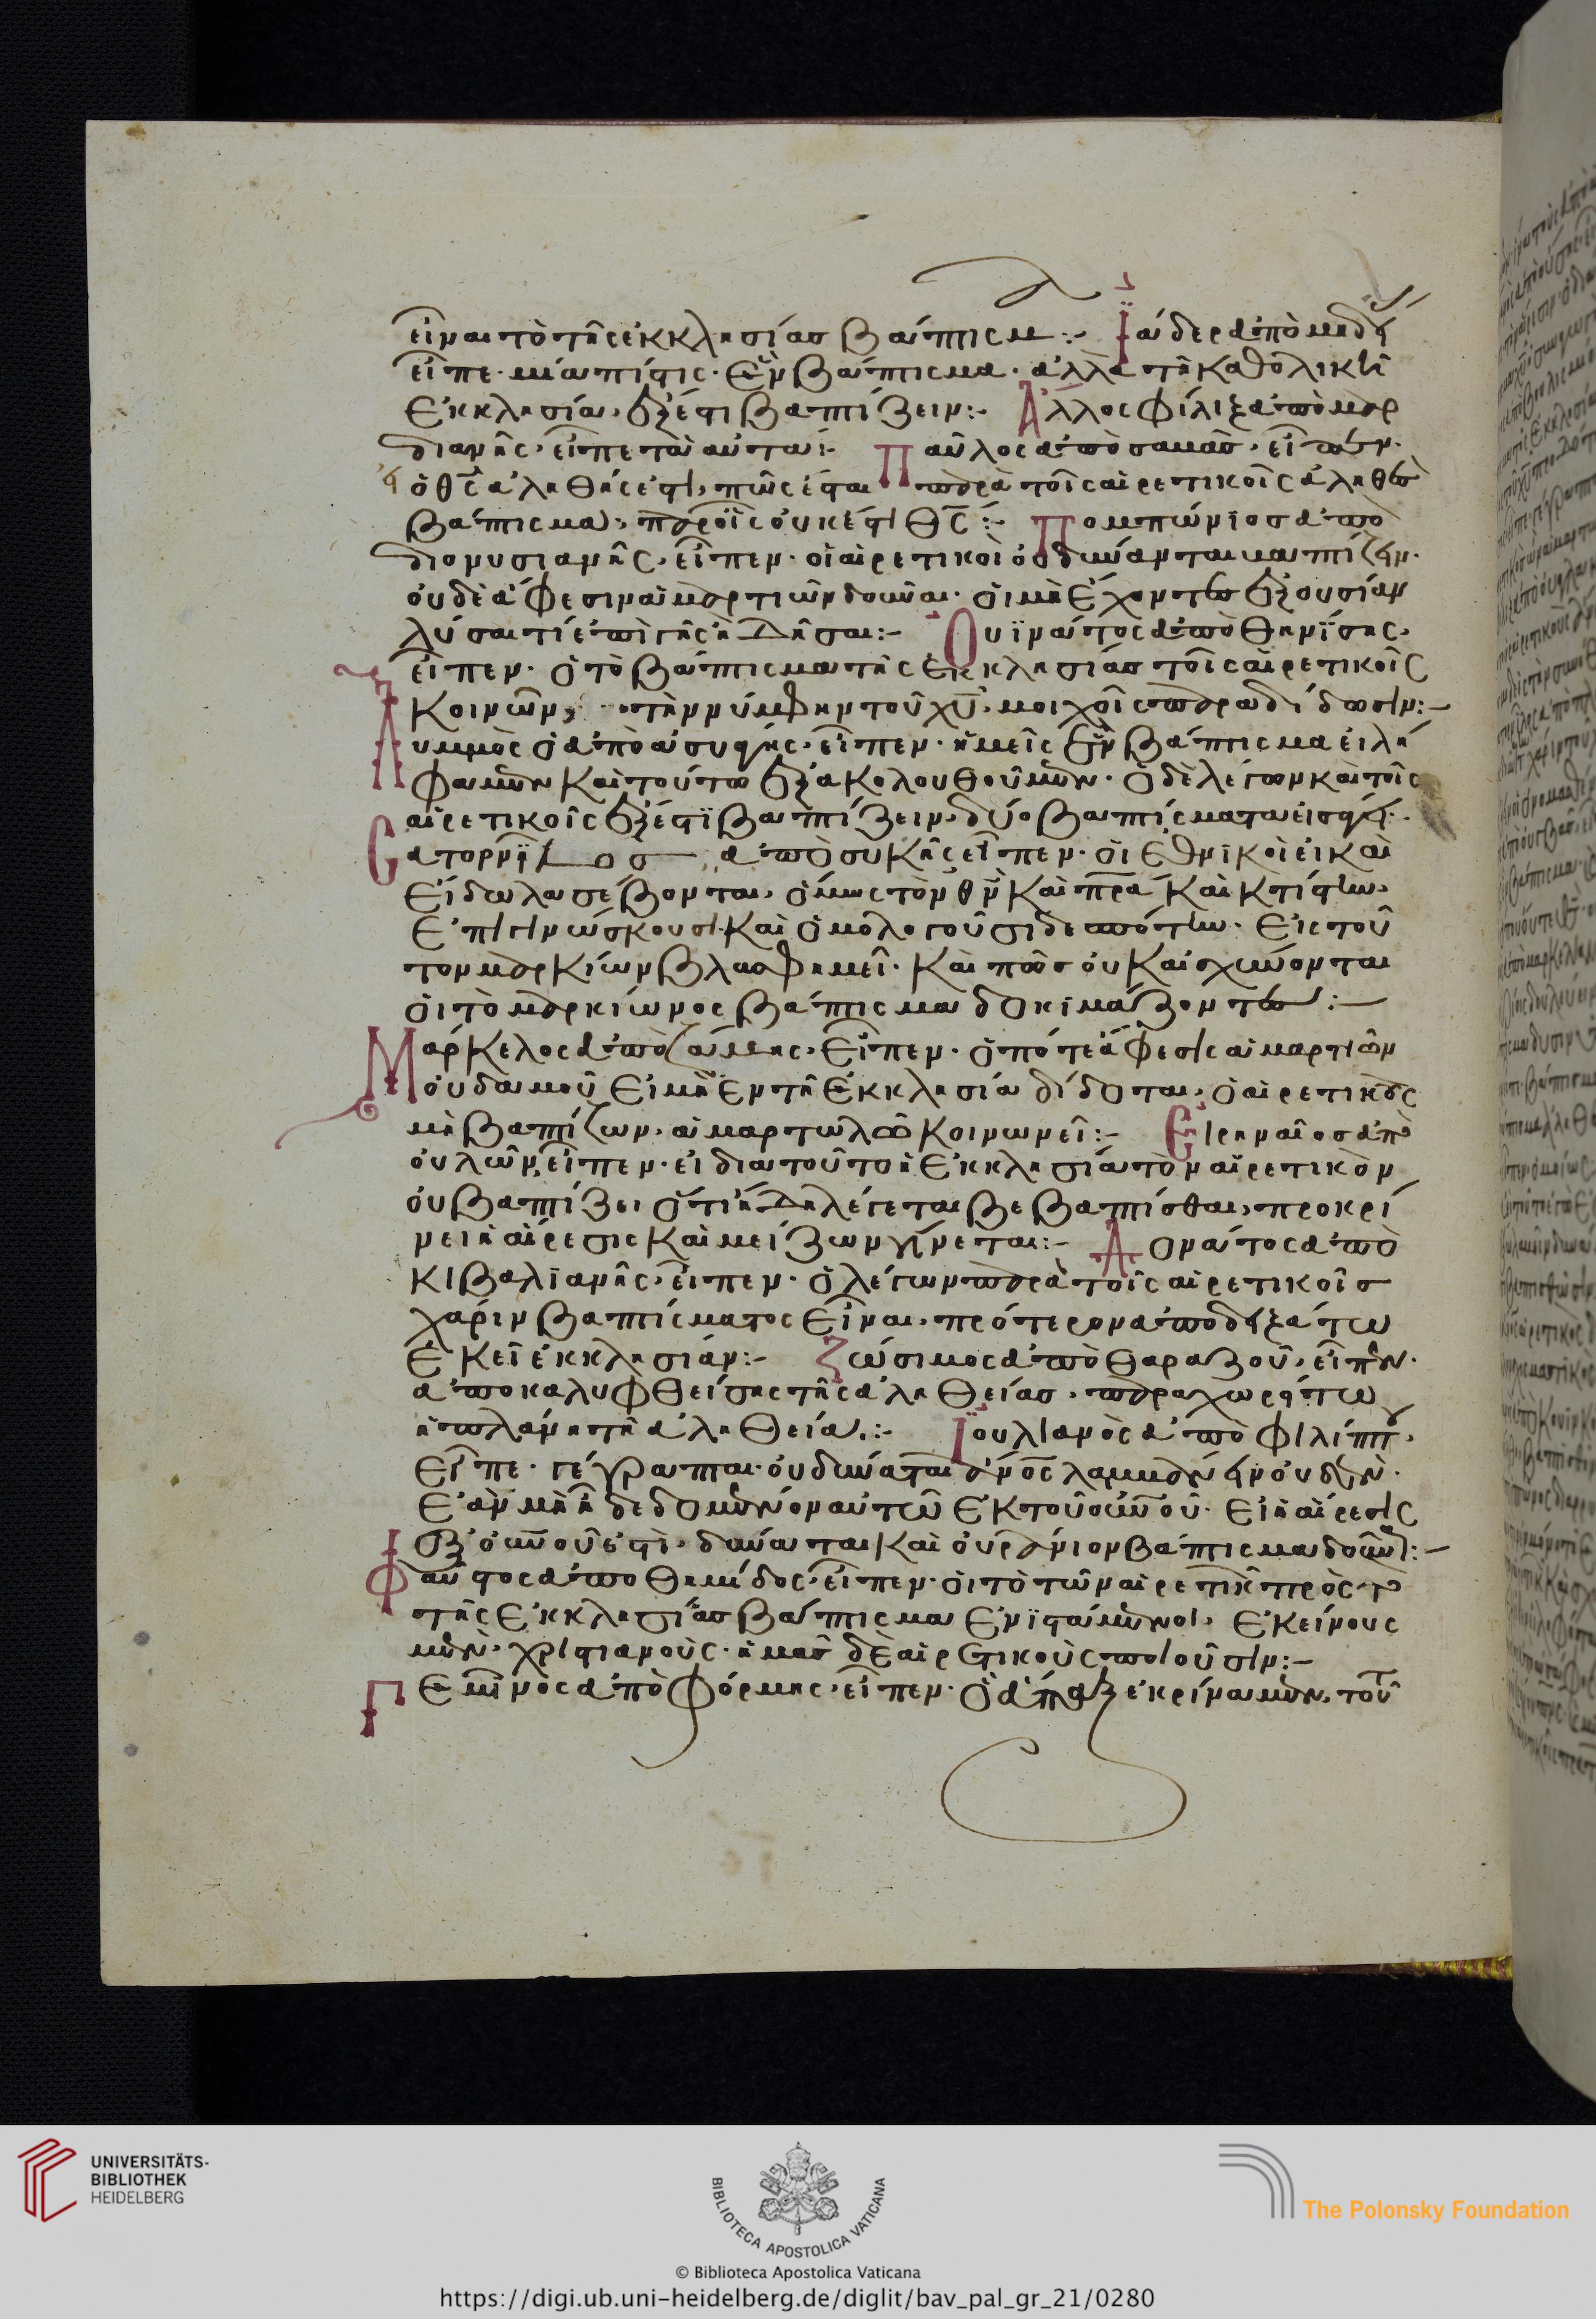 εἶναι τὸ τῆς ἐκκλησίας βάπτισμα :· Ϊάδερ ἀπὸ μηδί
εἶπε · μία πίστις · ἓν βάπτισμα · ἀλλὰ τῇ καθολικῇ
ἐκκλησίᾳ, ἔξεστι βαπτίζειν :· Ἄλλος φίλιξ ἀπὸ μαρ
διανῆς, εἶπε τὰ αὐτά :· Παῦλος ἀπὸ
ὁ θς ἀληθής ἐστι, πῶς ἔσται παρὰ τοῖς αἱρετικοῖς ἀληθὲς
βάπτισμα, παρ' οἷς οὐκ ἔστι θς :· Πομπώνιος ἀπὸ
διονυσιανῆς, εἶπεν · οἱ αἱρετικοὶ οὐ δύνανται βαπτίζειν ·
οὐδὲ ἄφεσιν ἁμαρτιῶν δοῦναι · οἱ μὴ ἔχοντες ἐξουσίαν
λῦσαί τι ἐπὶ γῆς ἢ δῆσαι :– Οὐϊνάντος ἀπὸ θηνίσης,
εἶπεν · ὁ τὸ βάπτισμα τῆς ἐκκλησίας τοῖς αἱρετικοῖς
κοινωνῶν, τὴν νύμφην τοῦ χυ, μοιχοῖς παραδίδωσιν :–
Αυμμὸς ὁ ἀπὸ αὐσυφῆς, εἶπεν · ἡμεῖς ἓν βάπτισμα εἰλή
φαμεν καὶ τούτῳ ἐξακολουθοῦμεν · ὁ δὲ λέγων καὶ τοῖς
αἱρετικοῖς ἔξεστϊ βαπτίζειν, δύο βαπτίσματα
Σατορνῖλος ἀπὸ συκῆς εἶπεν · οἱ ἐθνικοὶ εἰ καὶ
εἴδωλα σέβονται, ὅμως τὸν θν καὶ πρα καὶ κτίστην,
ἐπιγινώσκουσι καὶ ὁμολογοῦσι δεσπότην · εἰς τοῦ
τον μαρκίων βλασφημεῖ · καὶ πῶς οὐκ αἰσχύνονται
οἱ τὸ μαρκίωνος βάπτισμα δοκιμάζοντες :–
Μάρκελος ἀπὸ ζάμης, εἶπεν · ὁπότε ἄφεσις ἁμαρτιῶν
οὐδαμοῦ εἰ μὴ ἐν τῇ ἐκκλησίᾳ δίδοται, ὁ αἱρετικὸς
μὴ βαπτίζων, ἁμαρτωλῷ κοινωνεῖ :– Εἰρηναῖος ἀπὸ
οὐλῶν, εἶπεν · εἰ διατοῦτο ἡ ἐκκλησία τὸν αἱρετικὸν
οὐ βαπτίζει ὅτι ἤδη λέγεται βεβαπτίσθαι, προκρί
νει ἡ αἵρεσις καὶ μείζων γίνεται :– Δονάτος ἀπὸ
κιβαλϊανῆς, εἶπεν · ὁ λέγων παρὰ τοῖς αἱρετικοῖς
χάριν βαπτίσματος εἶναι, πρότερον ἀποδειξάτω
ἐκεῖ ἐκκλησίαν :– Ζώσιμος ἀπὸ θαραζοῦ, εἶπεν ·
ἀποκαλυφθείσης τῆς ἀληθείας, παραχωρήτω
ἡ πλάνη τῇ ἀληθείᾳ, :– Ϊουλιανὸς ἀπὸ φιλίππου,
εἶπε · γέγραπται · οὐ δύναται ἄνος λαμβάνειν οὐδὲν ·
ἐὰν μὴ ᾖ δεδομένον αὐτῷ ἐκ τοῦ οὐνοῦ · εἰ ἡ αἵρεσις
ἐξ οὐνοῦ ἐστὶ, δύναται καὶ οὐράνιον βάπτισμα δοῦναι :–
Φαῦστος ἀπὸ θημίδος, εἶπεν · οἱ τὸ τῶν αἱρετικῶν πρὸς τὸ
τῆς ἐκκλησίας βάπτισμα ἐνϊστάμενοι, ἐκείνους
μὲν, χριστιανοὺς · ἡμᾶς δὲ αἱρετικοὺς ποιοῦσιν :–
Γεμῖνος ἀπὸ φόρμης, εἶπεν · ὃ ἅπαξ ἐκρίναμεν, τοῦ
UNIVERSITÄTS-
BIBLIOTHEK
HEIDELBERG
BIBLIOTECA APOSTOLICA VATICANA
The Polonsky Foundation
© Biblioteca Apostolica Vaticana
https://digi.ub.uni-heidelberg.de/diglit/bav_pal_gr_21/0280